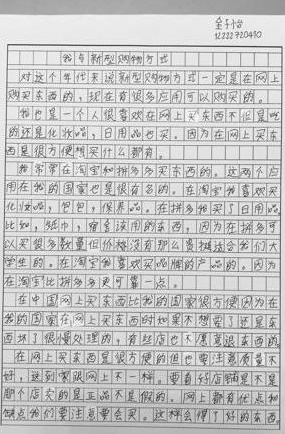 金子怡
12222720490
我与新型购物方式
对这个年代来说新型购物方式一定是在网上
购买东西的，现在有很多应用可以购买的。
我也是一个人很喜欢在网上买东西不但是吃
的还是化妆品，日用品也买。因为在网上买东
西是很方便想买什么都有。
我常常在淘宝和拼多多买东西的。这两个应
用在我的国家也是很有名的。在淘宝我喜欢买
化妆品，包包，保养品。在拼多我买了日用品
比如，纸巾，宿舍该用的东西，因为在拼多可
以买很多数量但价格没有那么贵挺适合我们大
学生的。在淘宝我喜欢买品牌的产品的。因为
在淘宝比拼多多更可靠一点。
在中国网上买东西比我的国家很方便因为在
我的国家在网上买东西时如果不想要了还是东
西坏了很慢处理的，有些店也不愿意退东西的
在网上买东西是很方便的但也要注意质量不
好，送到家跟网上不一样。要看好店铺是不是
那个店卖的是正品不是假的。网上都有优点和
缺点我们要注意要会买。这样会得了好的东西。